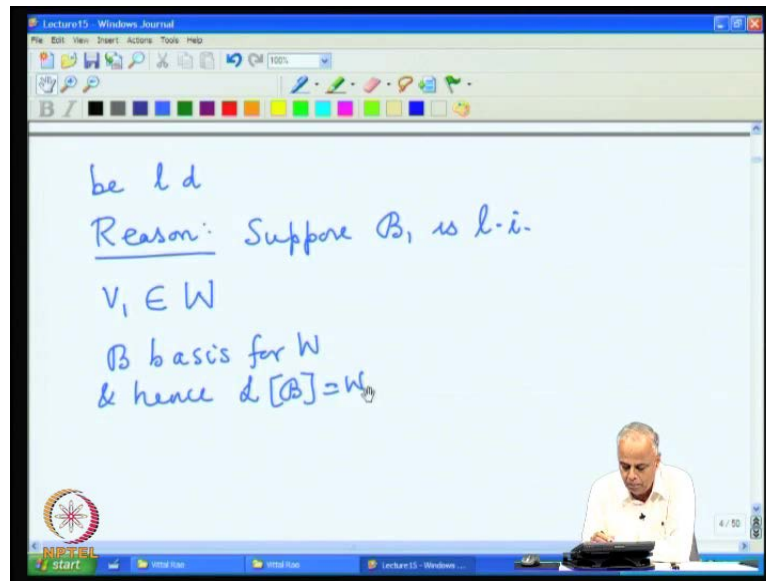 Lecture15 - Windows Journal
File Edit View Insert Actions Tools Help
100%
B I
be l d
Reason: Suppose B₁ is l.i.
V₁ ∈ W
B basis for W
& hence L [B] = W
4 / 50
NPTEL
start Vittal Rao Vittal Rao Lecture15 - Windows ...